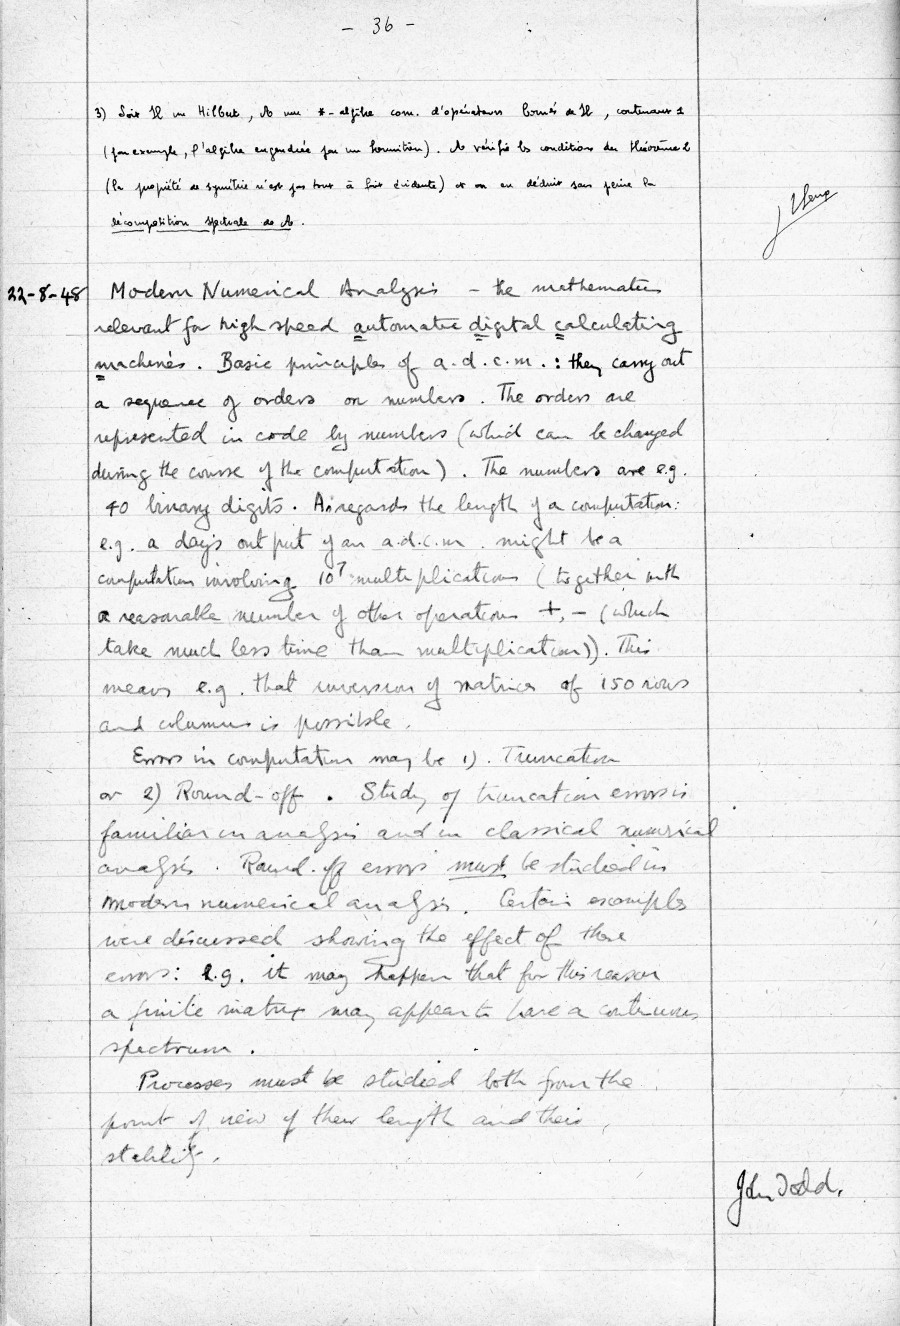 - 36 -
3) Soit H un Hilbert, A une *-algèbre com. d'opérateurs bornés de H, contenant 1
(par exemple, l'algèbre engendrée par un hermitien). A vérifie les conditions du théorème 2
(la propriété de symétrie n'est pas tout à fait évidente) et on en déduit sans peine la
décomposition spectrale de A.
22-8-48 Modern Numerical Analysis - the mathematics
relevant for high speed automatic digital calculating
machines. Basic principles of a.d.c.m.: they carry out
a sequence of orders on numbers. The orders are
represented in code by numbers (which can be changed
during the course of the computation). The numbers are e.g.
40 binary digits. As regards the length of a computation:
e.g. a day's output of an a.d.c.m. might be a
computation involving 10⁷ multiplications (together with
a reasonable number of other operations +, - (which
take much less time than multiplication)). This
means e.g. that inversion of matrices of 150 rows
and columns is possible.
Errors in computation may be 1). Truncation
or 2) Round-off. Study of truncation errors is
familiar in analysis and in classical numerical
analysis. Round-off errors must be studied in
modern numerical analysis. Certain examples
were discussed showing the effect of these
errors: e.g. it may happen that for this reason
a finite matrix may appear to have a continuous
spectrum.
Processes must be studied both from the
point of view of their length and their
stability.
John Todd.